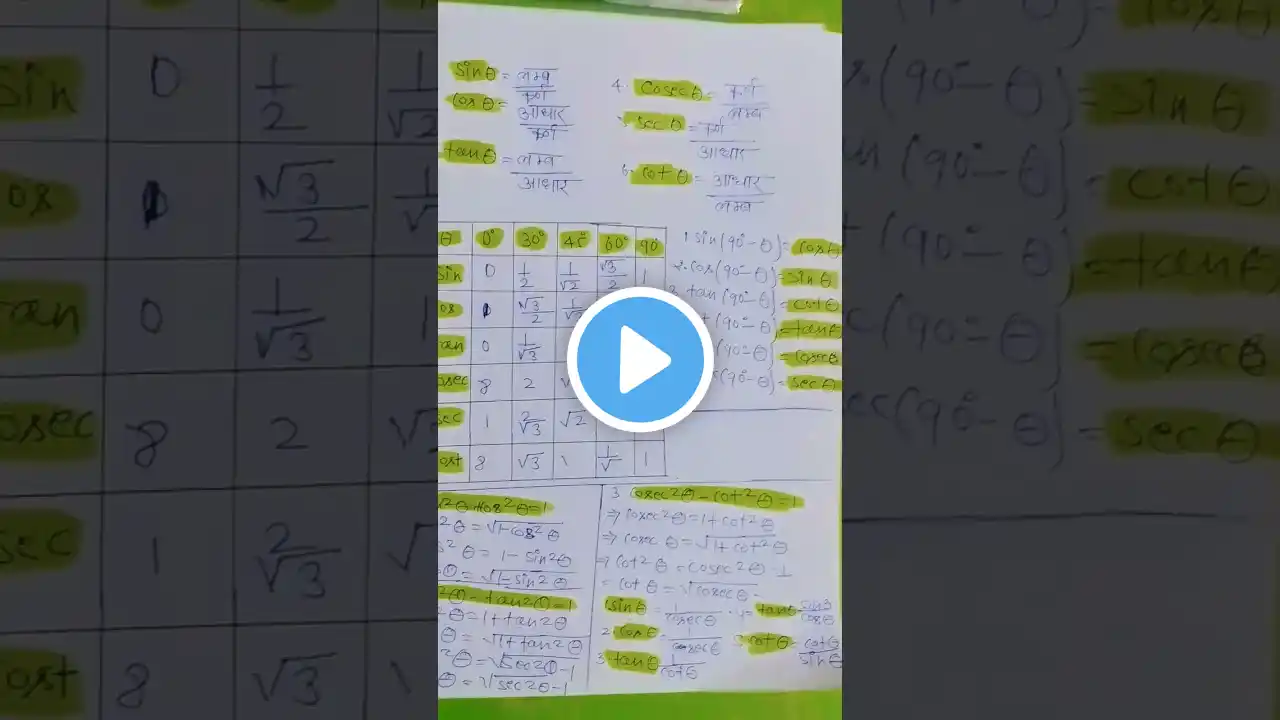 sinθ = लम्ब / कर्ण
cosθ = आधार / कर्ण
tanθ = लम्ब / आधार
4. Cosecθ = कर्ण / लम्ब
secθ = कर्ण / आधार
6. cotθ = आधार / लम्ब
θ 0° 30° 45° 60° 90
sin 0 1/2 1/√2 √3/2 1
os 1 √3/2
an 0 1/√3
osec 8 2
sec 1 2/√3 √2
ost 8 √3 1 1/√ 1
1. sin(90°-θ) = cosθ
2. cos(90°-θ) = sinθ
3. tan(90°-θ) = cotθ
(90°-θ) = tanθ
(90°-θ) = cosecθ
(90°-θ) = secθ
²θ+cos²θ=1
²θ = √1-cos²θ
s²θ = 1-sin²θ
θ = √1-sin²θ
²θ - tan²θ=1
²θ = 1+tan²θ
θ = √1+tan²θ
²θ = √sec²θ-1
θ = √sec²θ-1
3 cosec²θ-cot²θ=1
⇒ cosec²θ=1+cot²θ
⇒ cosecθ = √1+cot²θ
⇒ cot²θ = cosec²θ-1
= cotθ = √cosecθ-
sinθ = 1/cosecθ
tanθ sinθ/cosθ
2 cosθ = 1/cosecθ
cotθ = cotθ/sinθ
3 tanθ 1/cotθ